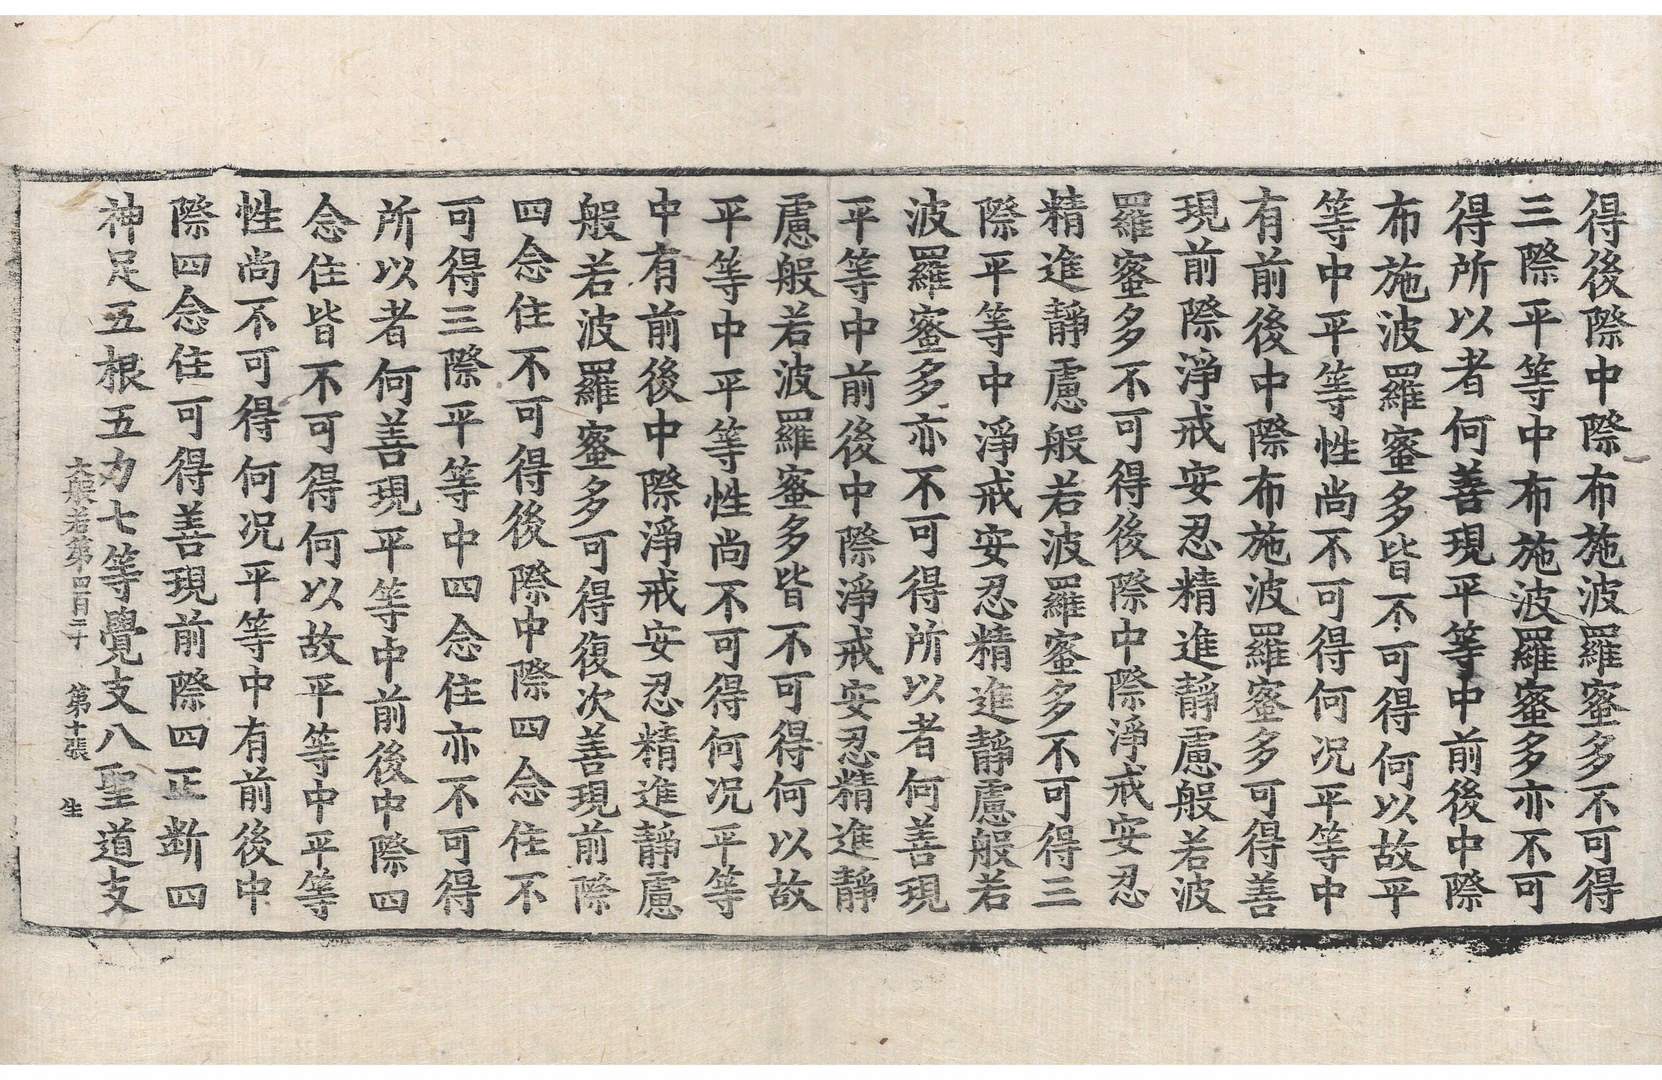 得後際中際布施波羅蜜多不可得
三際平等中布施波羅蜜多亦不可
得所以者何善現平等中前後中際
布施波羅蜜多皆不可得何以故平
等中平等性尚不可得何況平等中
有前後中際布施波羅蜜多可得善
現前際淨戒安忍精進靜慮般若波
羅蜜多不可得後際中際淨戒安忍
精進靜慮般若波羅蜜多不可得三
際平等中淨戒安忍精進靜慮般若
波羅蜜多亦不可得所以者何善現
平等中前後中際淨戒安忍精進靜
慮般若波羅蜜多皆不可得何以故
平等中平等性尚不可得何況平等
中有前後中際淨戒安忍精進靜慮
般若波羅蜜多可得復次善現前際
四念住不可得後際中際四念住不
可得三際平等中四念住亦不可得
所以者何善現平等中前後中際四
念住皆不可得何以故平等中平等
性尚不可得何況平等中有前後中
際四念住可得善現前際四正斷四
神足五根五力七等覺支八聖道支
大般若第四百二十 第十張 生